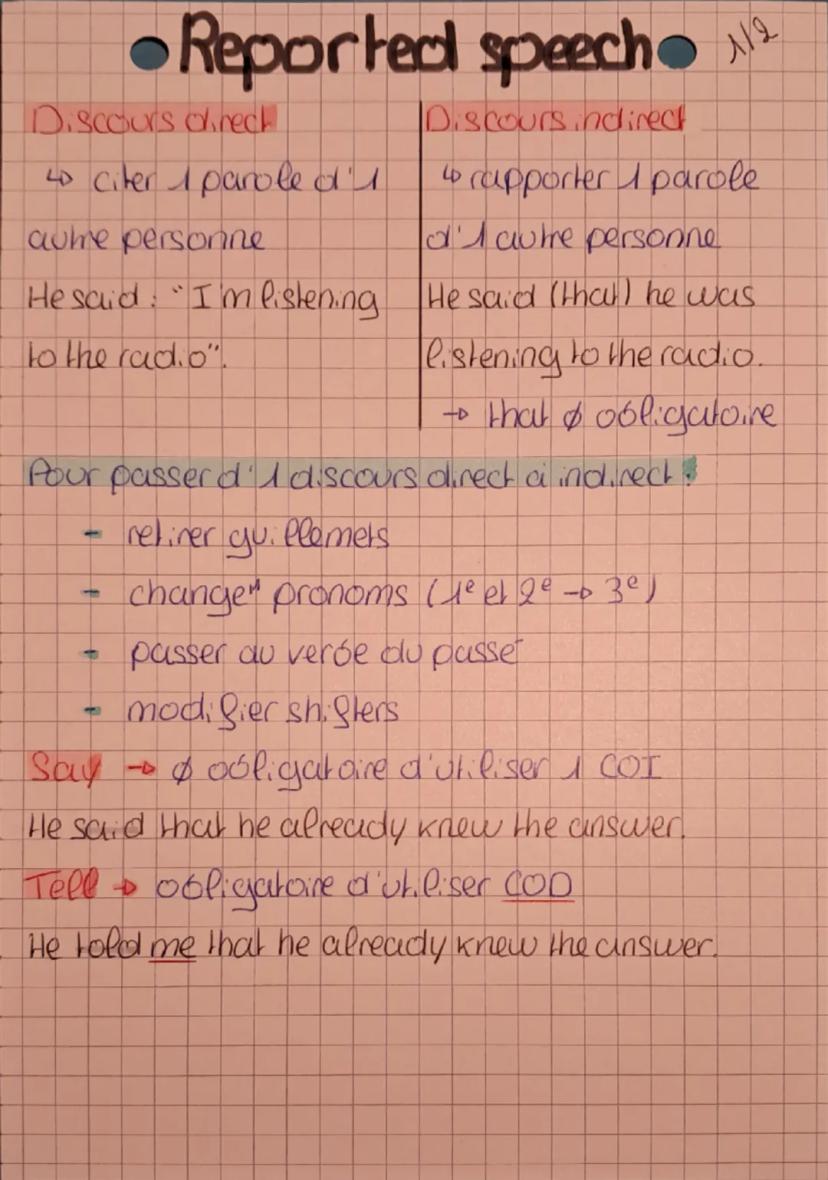 Reported speech
1/2
Discours direct
↳ citer 1 parole d'1
autre personne
He said : "I'm listening
to the radio".
Discours indirect
↳ rapporter 1 parole
d'1 autre personne
He said (that) he was
listening to the radio.
→ that ∅ obligatoire
Pour passer d'1 discours direct à indirect :
- retirer guillemets
- changer pronoms (1e et 2e → 3e)
- passer au verbe du passé
- modifier shifters
Say → ∅ obligatoire d'utiliser 1 COI
He said that he already knew the answer.
Tell → obligatoire d'utiliser COD
He told me that he already knew the answer.